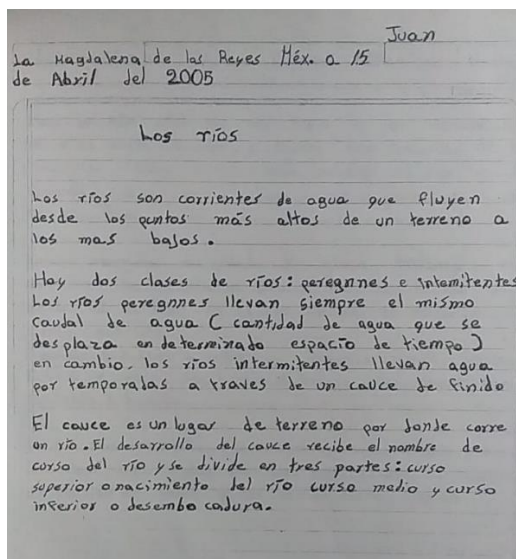 Juan
La Magdalena de los Reyes Méx. a 15
de Abril del 2005
Los ríos
Los ríos son corrientes de agua que fluyen
desde los puntos más altos de un terreno a
los mas bajos.
Hay dos clases de ríos: peregnnes e intemitentes
Los ríos peregnnes llevan siempre el mismo
caudal de agua ( cantidad de agua que se
desplaza en determinado espacio de tiempo )
en cambio. los ríos intermitentes llevan agua
por temporadas a traves de un cauce de finido
El cauce es un lugar de terreno por donde corre
un río. El desarrollo del cauce recibe el nombre de
curso del río y se divide en tres partes: curso
superior o nacimiento del río curso medio y curso
inferior o desembo cadura.